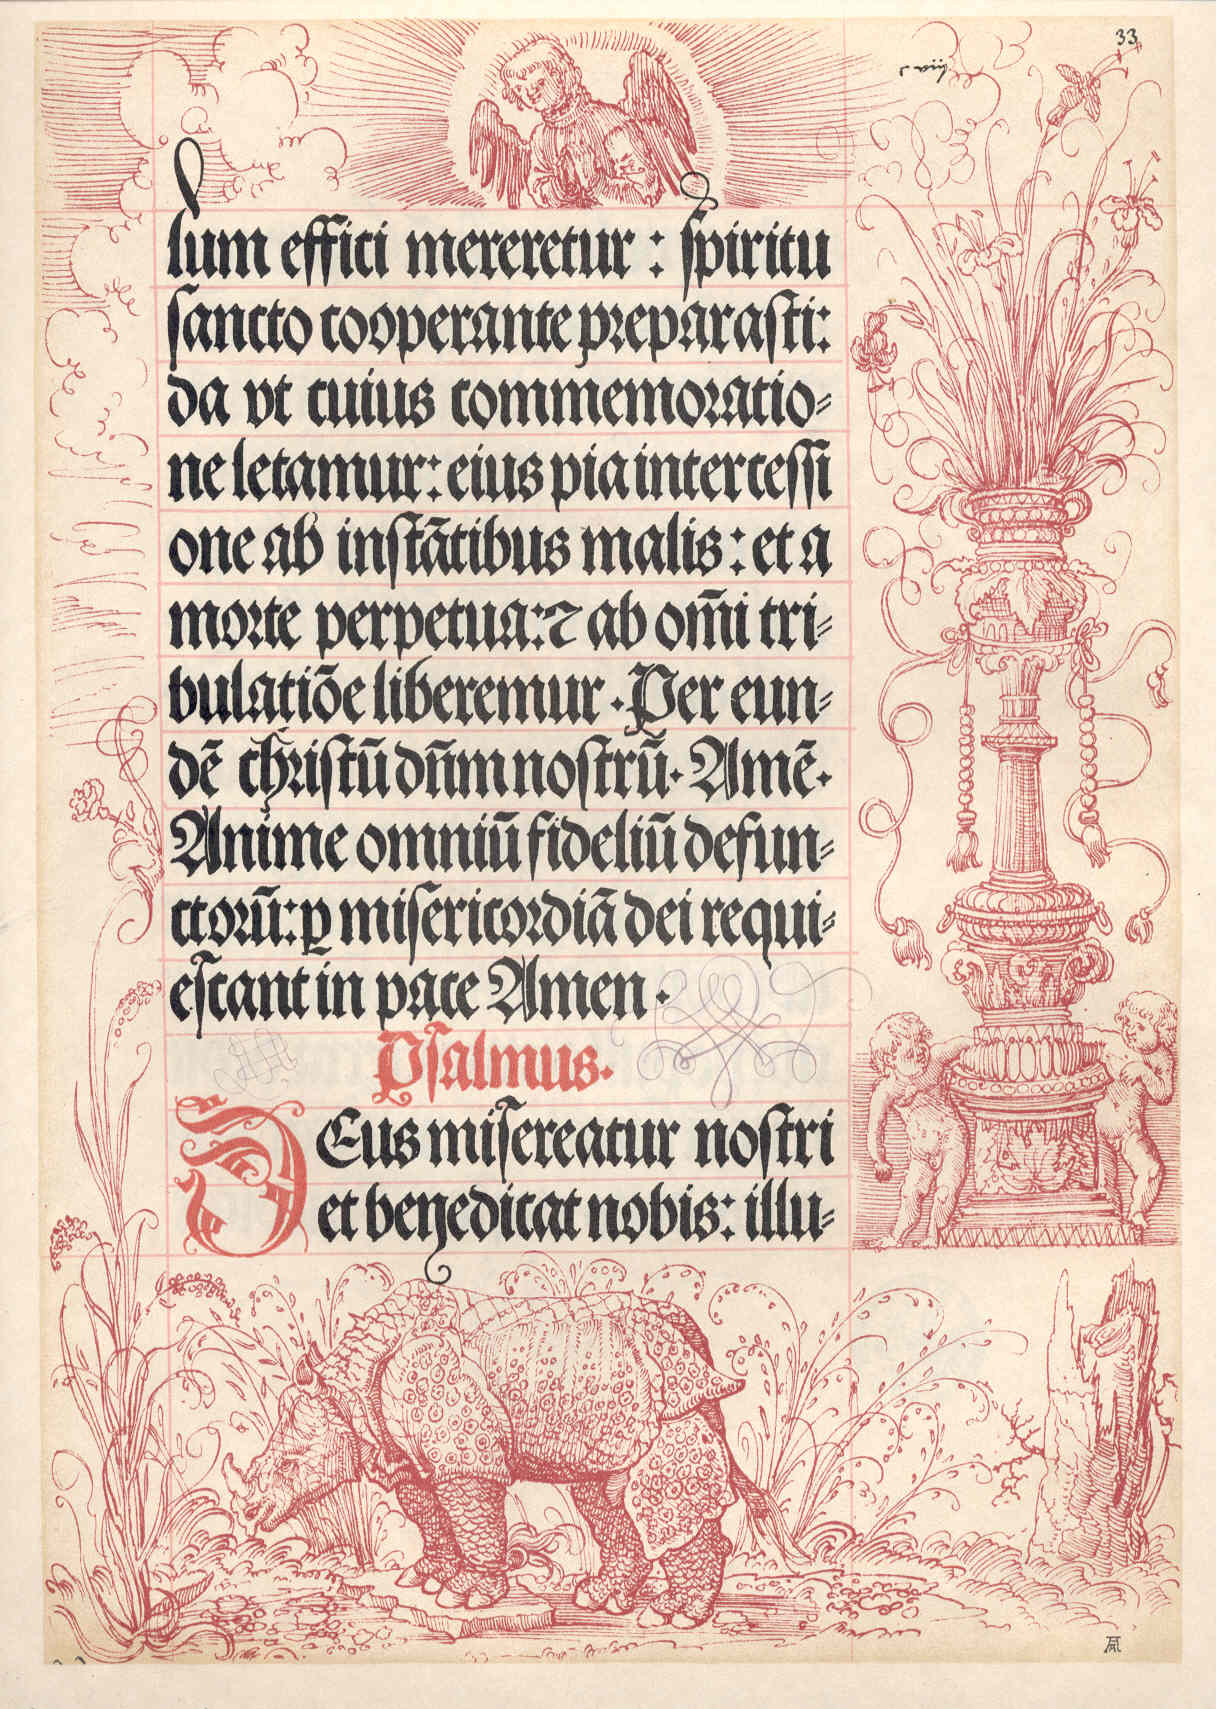 33
c viij
lum effici mereretur : spiritu
sancto cooperante preparasti:
da vt cuius commemoratio⸗
ne letamur: eius pia intercessi
one ab instātibus malis: et a
morte perpetua: ⁊ ab om̄i tri⸗
bulatiōe liberemur. Per eun⸗
dē christū dn̄m nostrū. Amē.
Anime omniū fideliū defun⸗
ctorū: ꝑ misericordiā dei requi⸗
escant in pace Amen.
Psalmus.
DEus misereatur nostri
et benedicat nobis: illu⸗